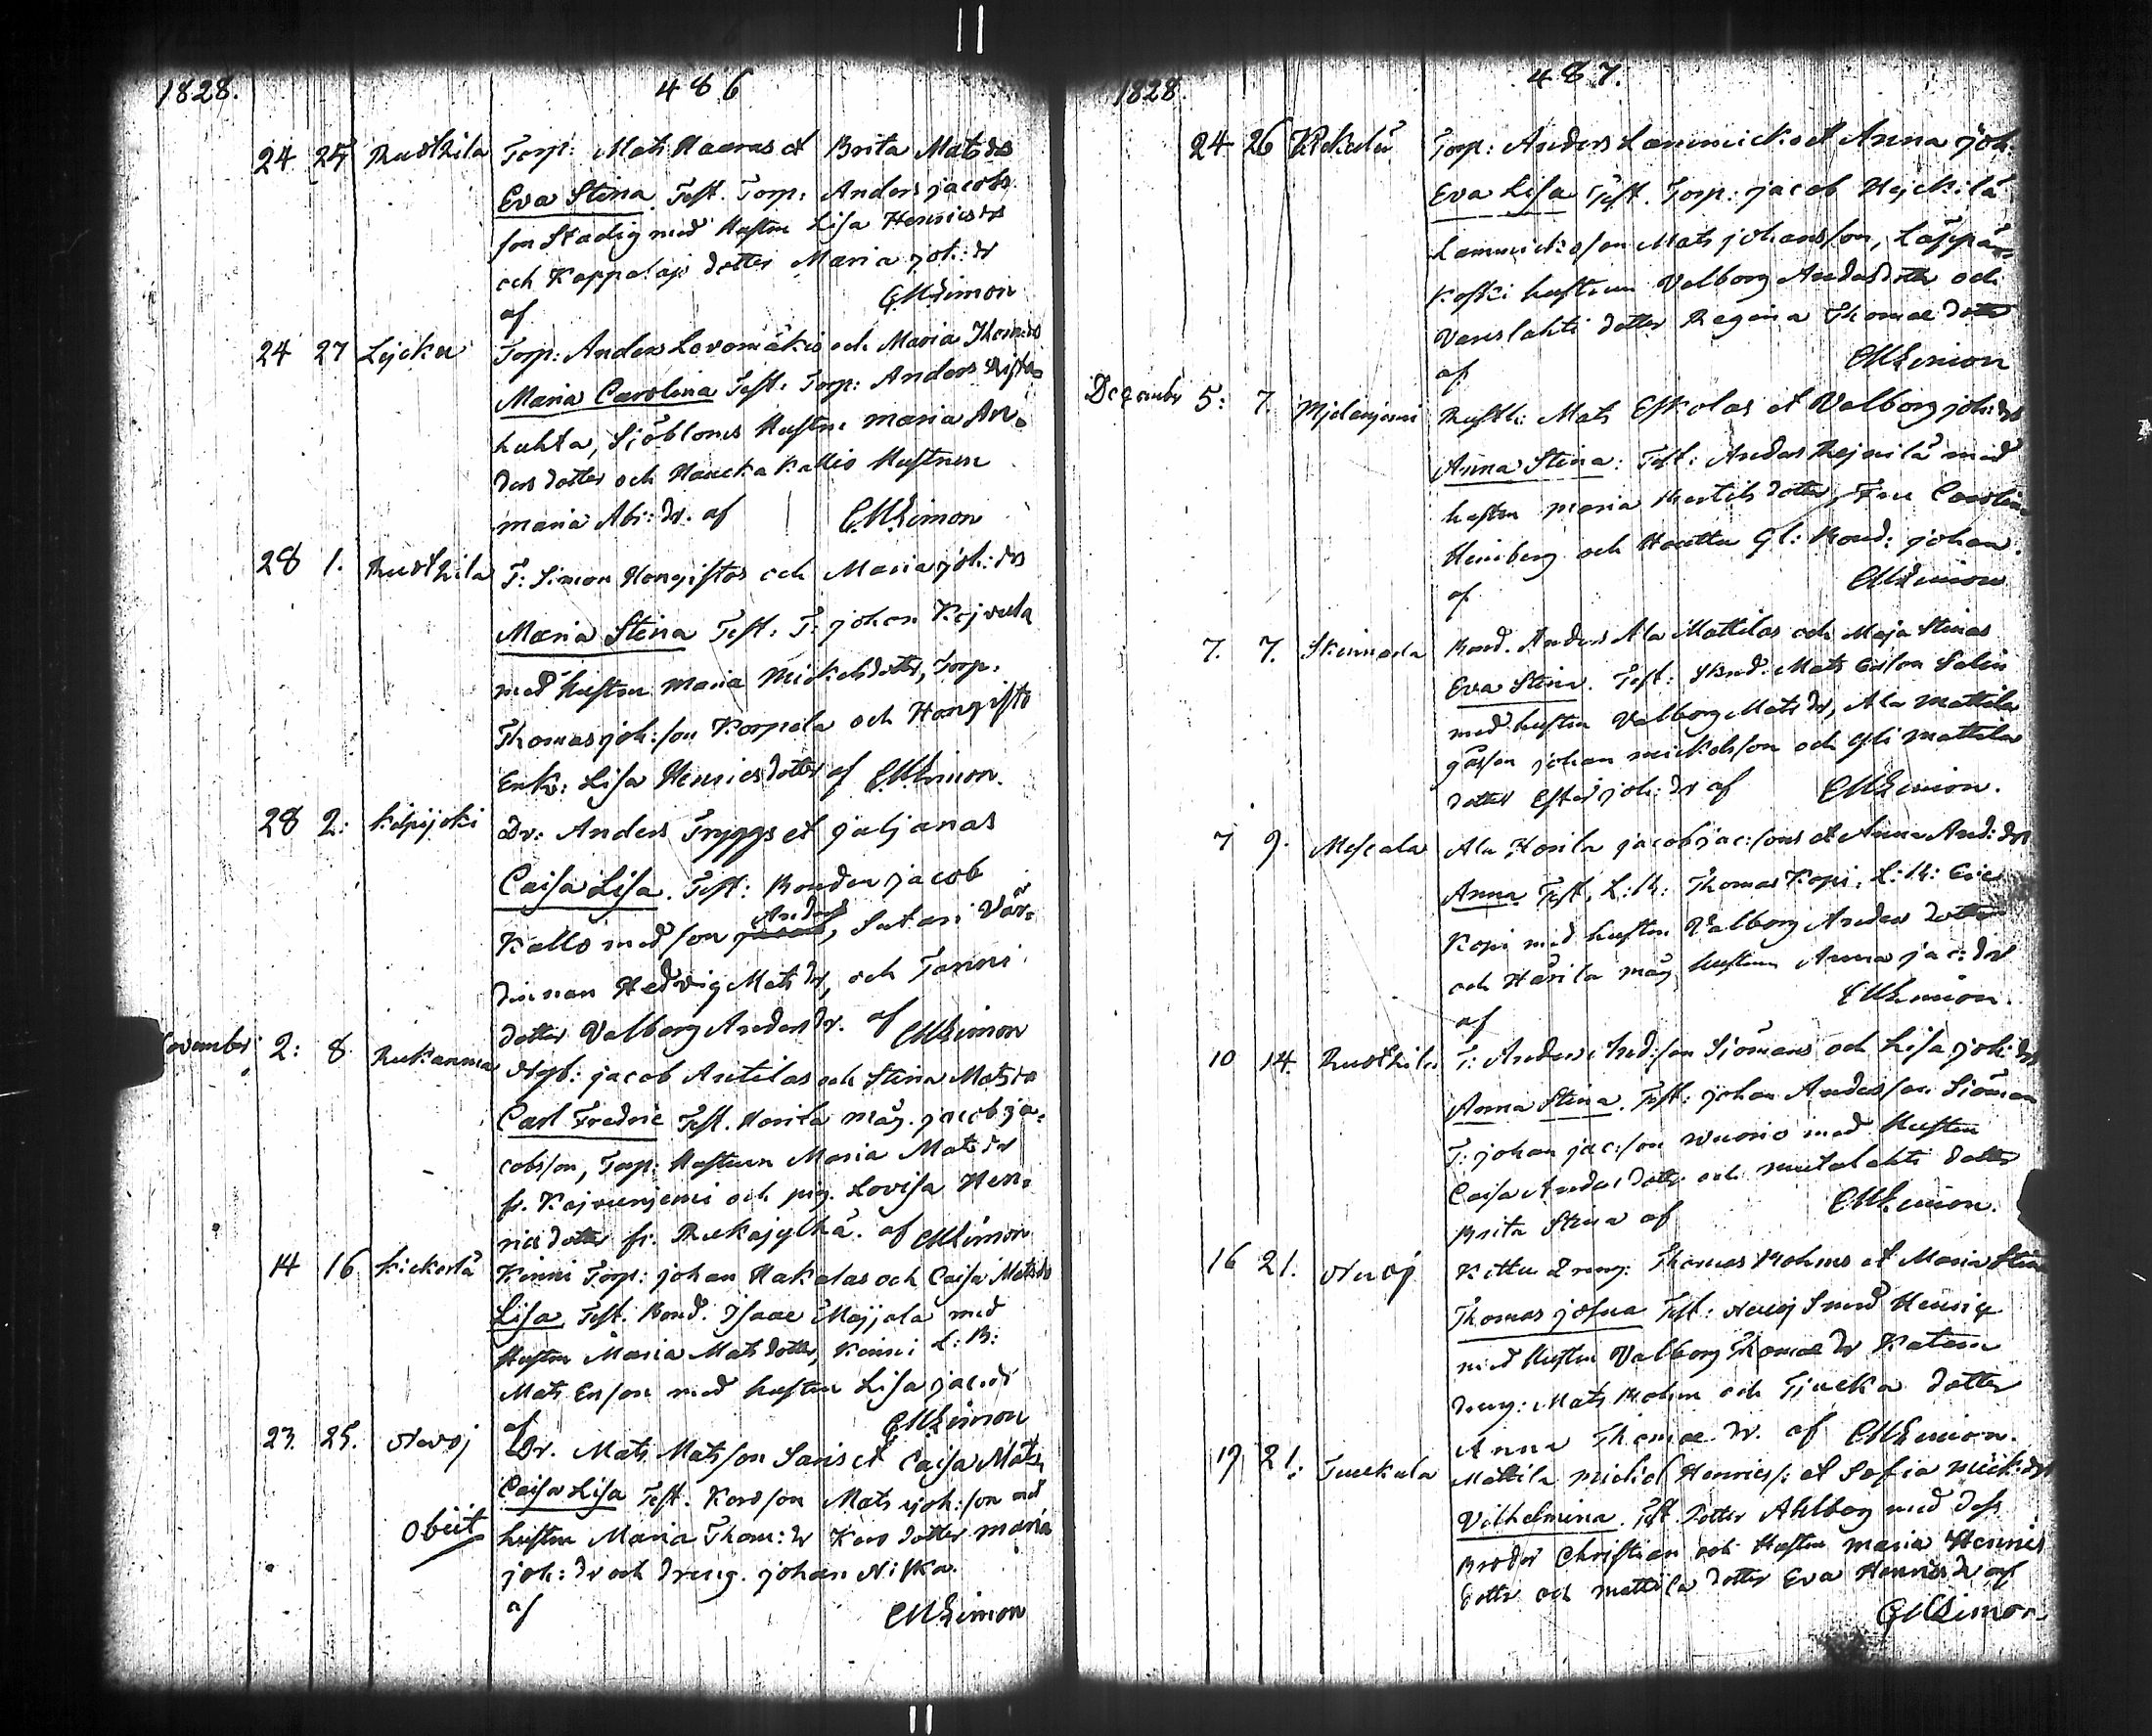 1828. 486
24 25 Ruothila Torp: Mats Haaras et Brita Matsdr
Eva Stina. Test. Torp: Anders jacobs
son Stadig med Hustru Lisa Henricsdr
och Koppalaj dotter Maria joh:dr
af CMLimon
24 27 Lejcka Torp: Anders Lovomäkis och Maria Thom:dr
Maria Carolina Test: Torp: Anders Rista
huhta, Sjöbloms Hustru maria An
dersdotter och Hauckakallio Hustrun
maria Abr:dr. af CMLimon
28 1. Ruothila T: Simon Hongistos och Maria joh:dr
Maria Stina Test. T: johan Kejvula
med hustru Maria Mickelsdotter, Torp:
Thomas joh:son Korpela och Hongisto
Enk: Lisa Henricsdotter af CMLimon.
28 2: Kilpijoki Dr: Anders Tryggs et juljanas
Caisa Lisa. Test: Bonden jacob
Anders
Kallo med son, Sutari Vär=
dinnan Hedvig Mats dr, och Tanni
dotter Valborg Anders dr. af CMLimon
November 2: 8 Rukanma Nyb: jacob Antilas och Stina Matsdr
Carl Fredric Test. Horila måg. jacob ja=
cobsson, Torp: Hustrun Maria Mats dr
fr. Kajvunjemi och pig. Lovisa Hen=
ricsdotter fr. Ruckajylhä. af CMLimon
14 16 Kickerlä Kinni Torp: johan Hakalas och Caisa Matsdr
Lisa Test. Bond. Isaac Majjala med
Hustru Maria Matsdotter, Kinni L: B:
Mats Ersson med hustru Lisa jac:dr
af CMLimon
23. 25. Nevoj Dr. Mats Matsson Saris et Caisa Mats
Caisa Lisa Test. Korsson Mats joh:son med
Obiit hustru Maria Thom:dr Kors dotter maria
joh:dr och dreng. johan Niska.
af CMLimon
1828. 487.
24 26 Kickulä Torp: Anders Lammick et Anna joh.
Eva Lisa Test. Torp: jacob Hejckilä
Lammick son Mats johansson, Läppä=
koski hustrun Valborg Andersdotter och
Varislahti dotter Regina Thomae dotter
af CMLimon
December 5: 7. Mjelanjemi Rusth: Mats Eskolas et Valborg joh:dr
Anna Stina: Test: Anders Rejnilä med
hustru maria Martils dotter, Fru Carolina
Heinberg och Hautta Gl: Bond: johan.
af CMLimon
7. 7. Skinnarla Bond. Anders Ala Mattilas och Maja Stinas
Eva Stina. Test: Mats Ersson Salin
med hustru Valborg Mats dr, Ala Mattila
gåsson johan mickelsson och yli mattila
dotter Ester joh:dr af CMLimon.
7 9. Mescala Ala Horila jacob jac:sons et Anna And:dr
Anna Test. L:B: Thomas Kopi, L:B: Eric
Kopi med hustru Valborg Anders dotter
och Härila måg hustrun Anna jac:dr
af CMLimon.
10 14. Ruothila T: Anders And:son Sjömans och Lisa joh:dr
Anna Stina. Test: johan Andersson Sjöman
T: johan jac:son Wuorio med Hustru
Caisa Anders dotter och mutalahti dotter
Brita Stina af CMLimon.
16 21. Nevoj Kottu Dreng: Thomas Bohms et Maria Stina
Thomas josua Test: Nevoj Smed Henric
med Hustru Valborg Thomae dr Katava
dreng: Mats Bohm och Tjucka dotter
Anna Thomae dr. af CMLimon.
19 21: Tuukkala Mattila michel Henrics: et Sofia mick:dr
Vilhelmina. Test. Dotter Ahlberg med dess
Broder Christian och Hustru maria Henrics
dotter och mattila dotter Eva Henrics dr af
CMLimon.